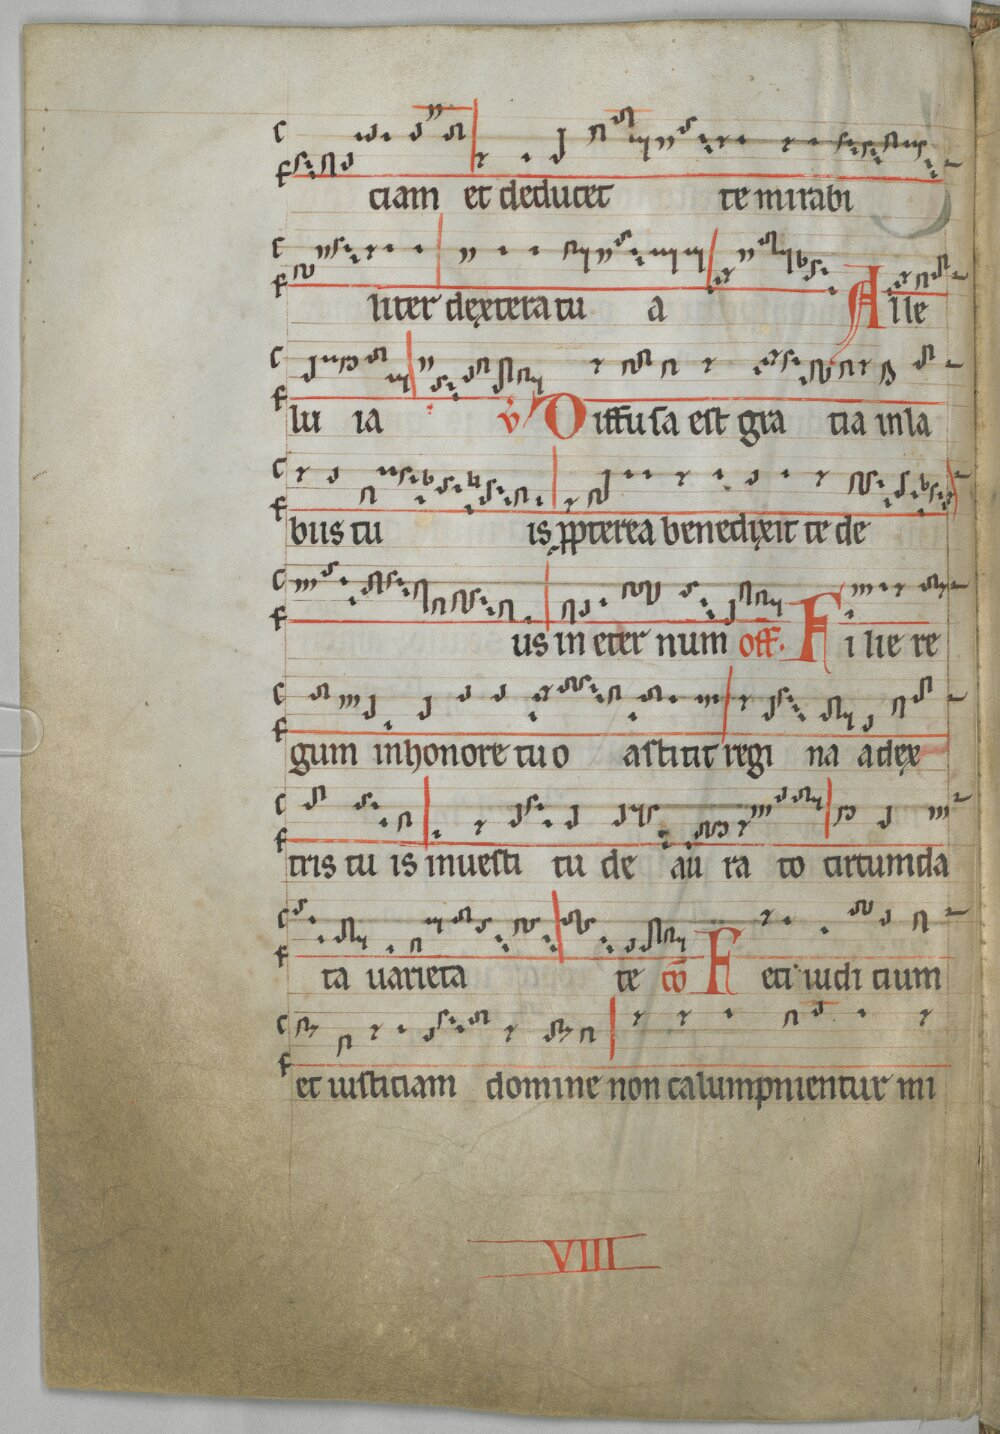 ciam et deducet te mirabi
liter dextera tu a Alle
lu ia v Diffusa est gra tia in la
biis tu is ppterea benedixit te de
us in eter num off. Filie re
gum in honore tuo astitit regi na adex
tris tu is in vesti tu de au ra to circumda
ta varieta te co Feci iudi cium
et iusticiam domine non calumpnientur mi
VIII